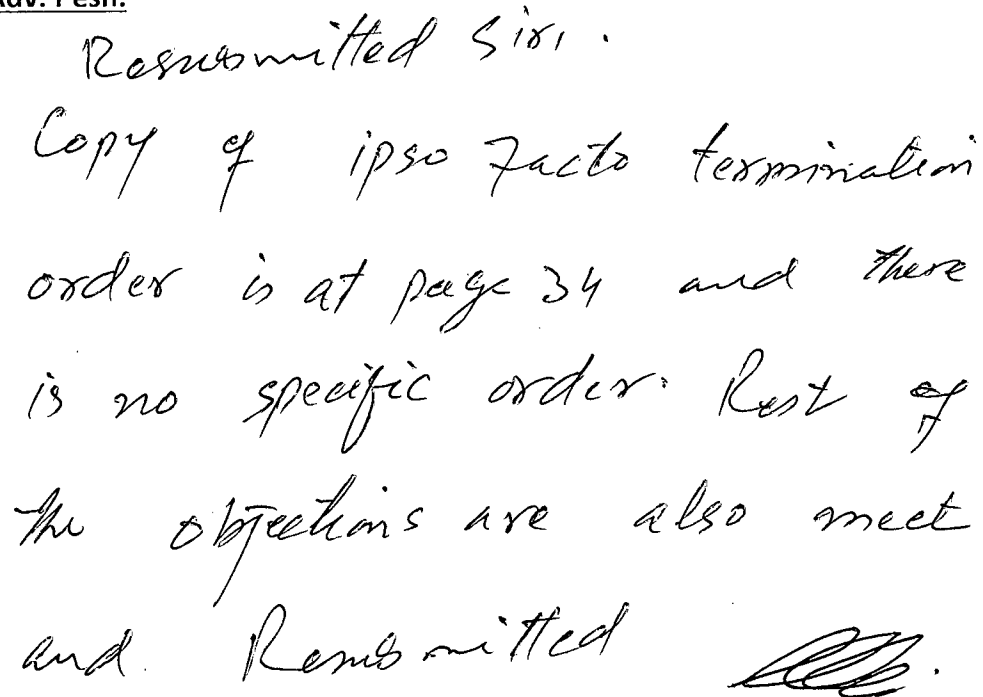 Adv. Pesh.
Resubmitted Sir,
Copy of ipso facto termination
order is at page 34 and there
is no specific order. Rest of
the objections are also meet
and Resubmitted